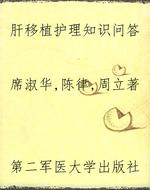 肝移植护理知识问答
席淑华,陈律,周立著
第二军医大学出版社